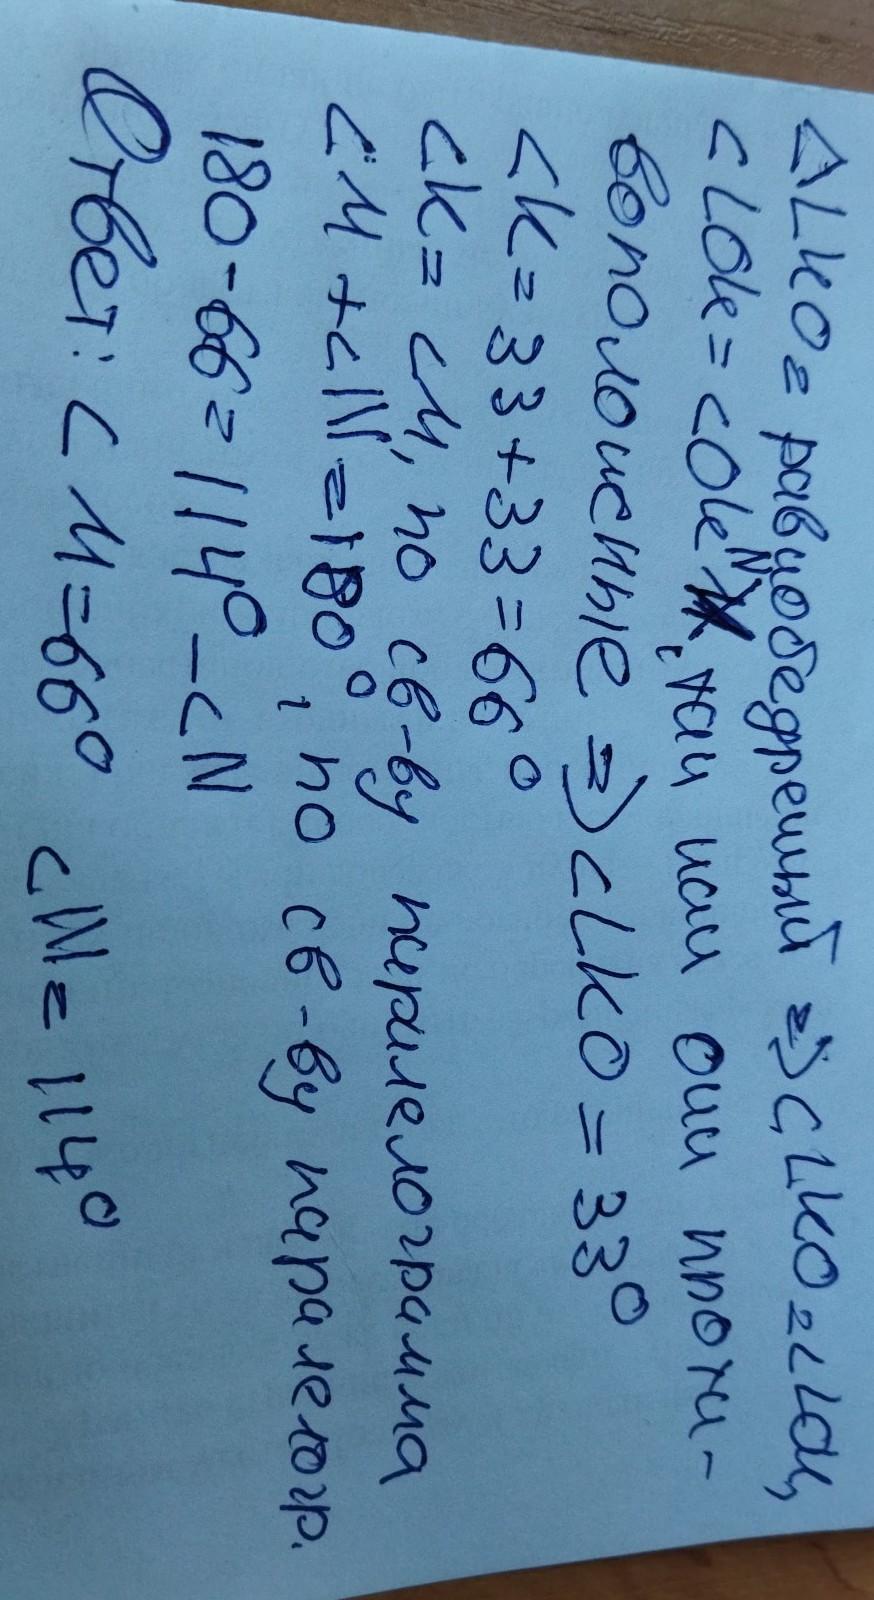 ΔLKO = равнобедренный => <LKO = <LOK,
<LOK = <OKN, так как они проти-
вополоисные => <LKO = 33°
<K = 33 + 33 = 66°
<K = <M, по св-ву паралелограмма
<M + <N = 180°, по св-ву паралелогр.
180 - 66 = 114° - <N
Ответ: <M = 66° <N = 114°